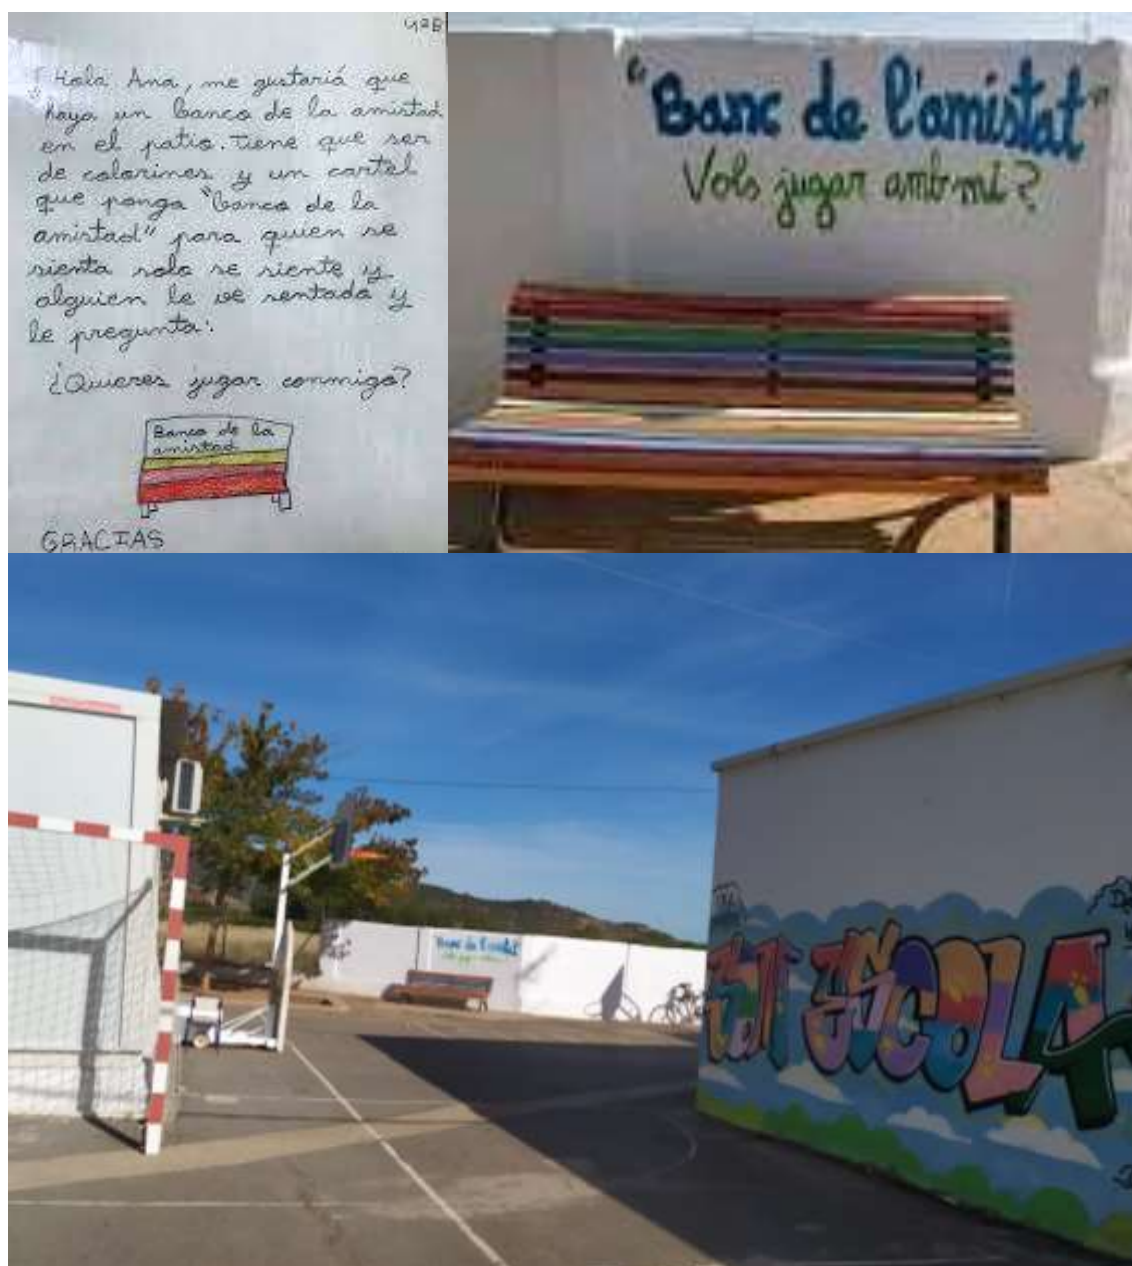 4ºB
Hola Ana, me gustariá que
haya un banco de la amistad
en el patio. Tiene que ser
de colorines y un cartel
que ponga "banco de la
amistad" para quien se
sienta solo se siente y
alguien le ve sentado y
le pregunta:
¿Quieres jugar conmigo?
Banco de la
amistad
GRACIAS
"Banc de l'amistat"
Vols jugar amb mi?
Banc de l'amistat
ESCOLA